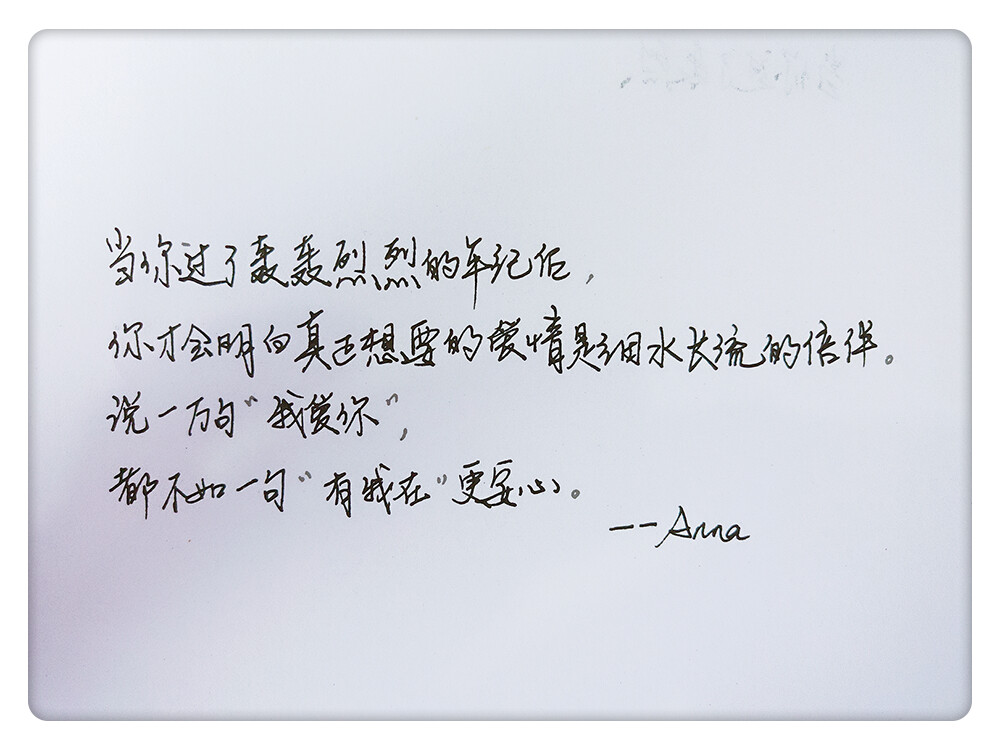 当你过了轰轰烈烈的年纪后，
你才会明白真正想要的爱情是细水长流的倍伴。
说一万句“我爱你”，
都不如一句“有我在”更安心。
--Anna